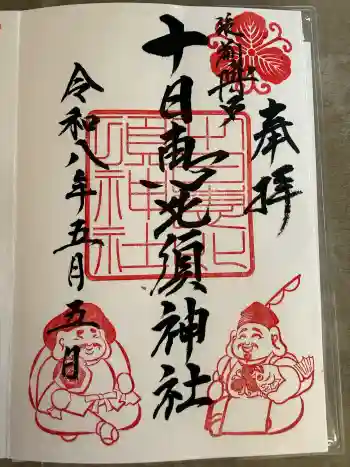 奉拝
筑前國一
十日恵比須神社
十日恵比須神社
令和八年五月五日